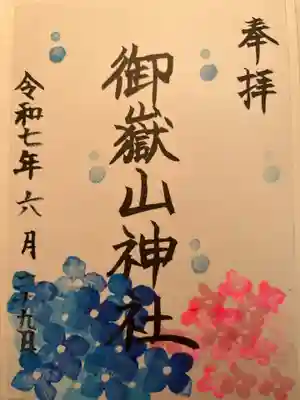 奉拝
御嶽山神社
令和七年六月二十九日